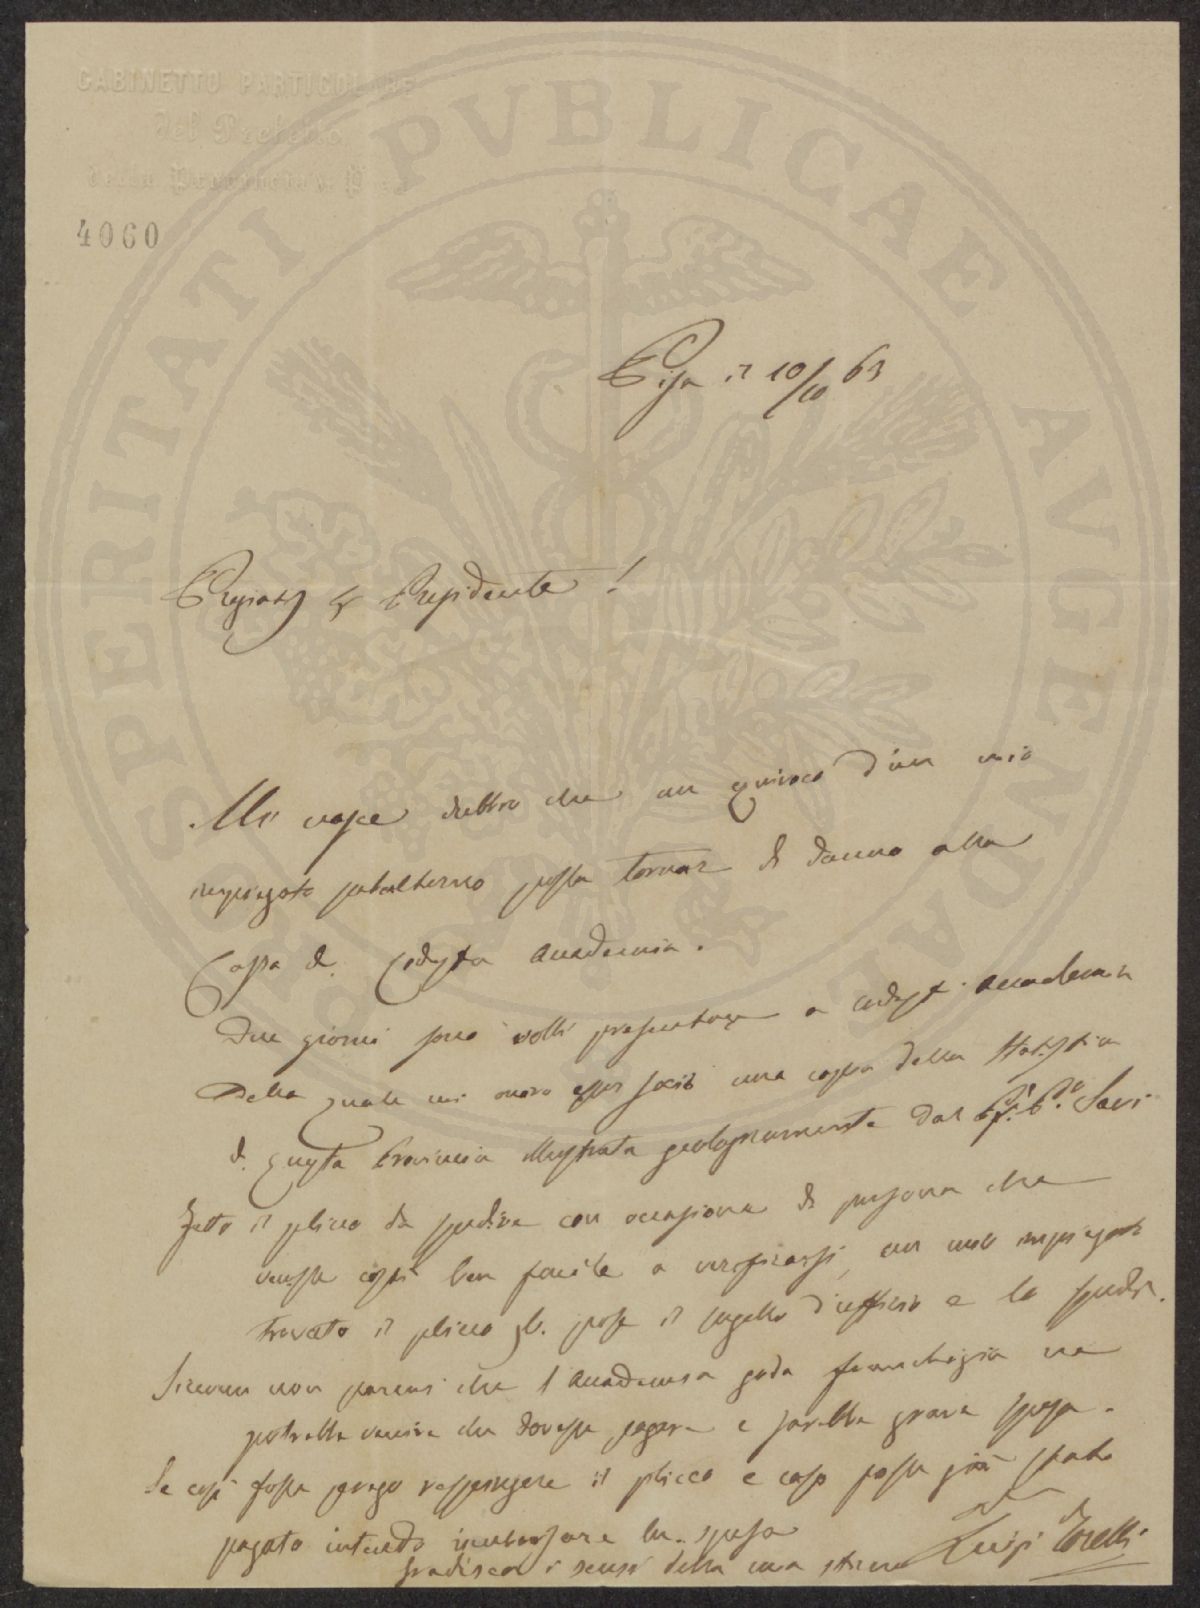 GABINETTO PARTICOLARE
del Prefetto
della Provincia di Pisa
4060
PROSPERITATI PVBLICAE AVGENDAE
Pisa il 10/10 63
Pregiatmo Sr Presidente!
Mi nasce dubbio che un equivoco d'un mio
impiegato subalterno possa tornare di danno alla
Cassa di codesta Accademia.
Due giorni sono volli presentare a codesta Accademia
Della quale mi onoro esser socio una copia della Statistica
di questa Provincia illustrata geologicamente dal Savi
il plico da spedire con occasione di persona che
venisse costì ben facile a verificarsi, un mio impiegato
trovato il plico pose il sugello d'ufficio e lo spedì.
Siccome non parmi che l'Accademia goda franchigia ne
potrebbe venire che dovesse pagare e sarebbe grave spesa.
Se così fosse prego respingere il plico e caso fosse già stato
pagato intendo rimborsare la spesa
Gradisca i sensi della mia stima Luigi Torelli